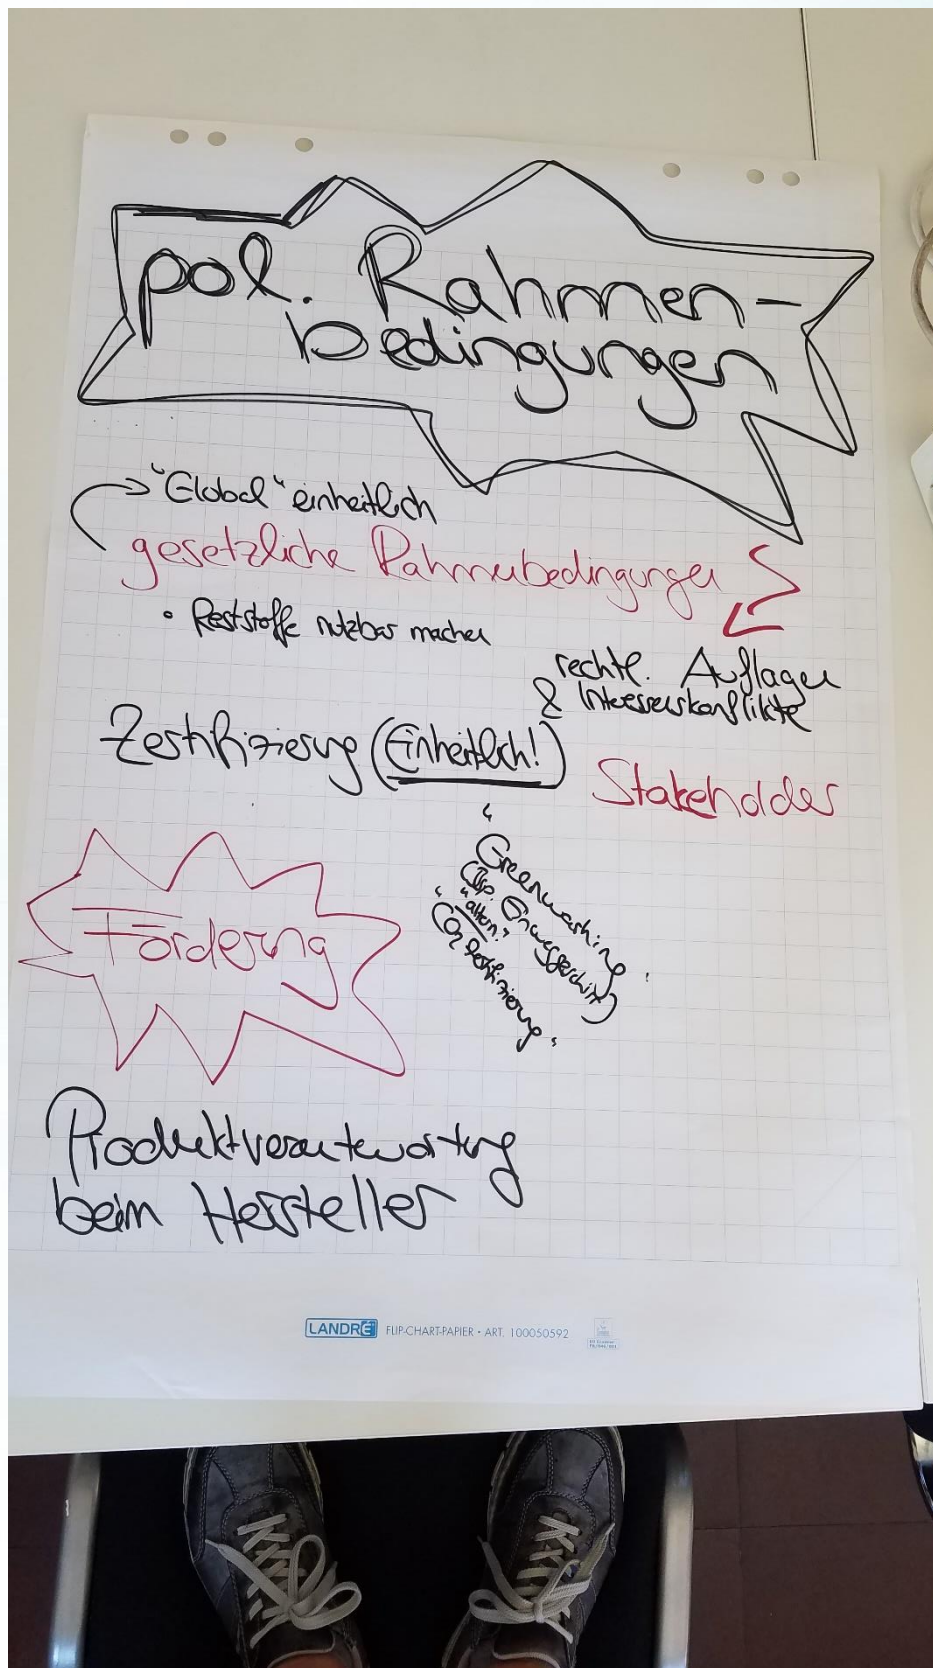 pol. Rahmen-
bedingungen
"Global" einheitlich
gesetzliche Rahmenbedingungen
• Reststoffe nutzbar machen
rechtl. Auflagen
& Interessenskonflikte
Zertifizierung (Einheitlich!)
Stakeholder
"Greenwashing"
(Bsp. Einweggeschirr)
"CO2 Zertifizierung"
Förderung
Produktverantwortung
beim Hersteller
LANDRÉ FLIP-CHART-PAPIER • ART. 100050592